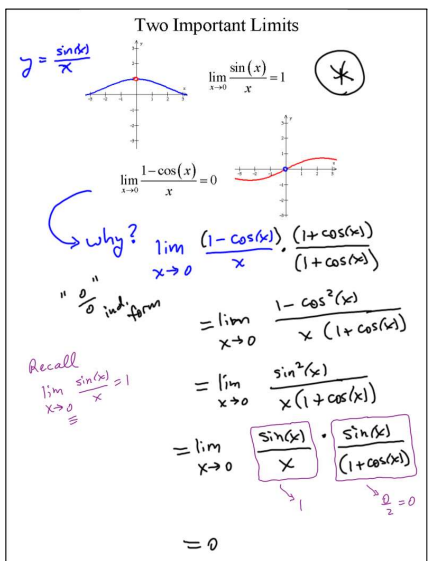 Two Important Limits
y = sin(x)/x
lim x→0 sin(x)/x = 1
*
lim x→0 1−cos(x)/x = 0
why? lim x→0 (1 - cos(x))/x · (1 + cos(x))/(1 + cos(x))
" 0/0 " ind. form
= lim x→0 1 - cos²(x)/x (1 + cos(x))
Recall
lim x→0 sin(x)/x = 1
= lim x→0 sin²(x)/x (1 + cos(x))
= lim x→0 sin(x)/x · sin(x)/(1 + cos(x))
1
0/2 = 0
= 0